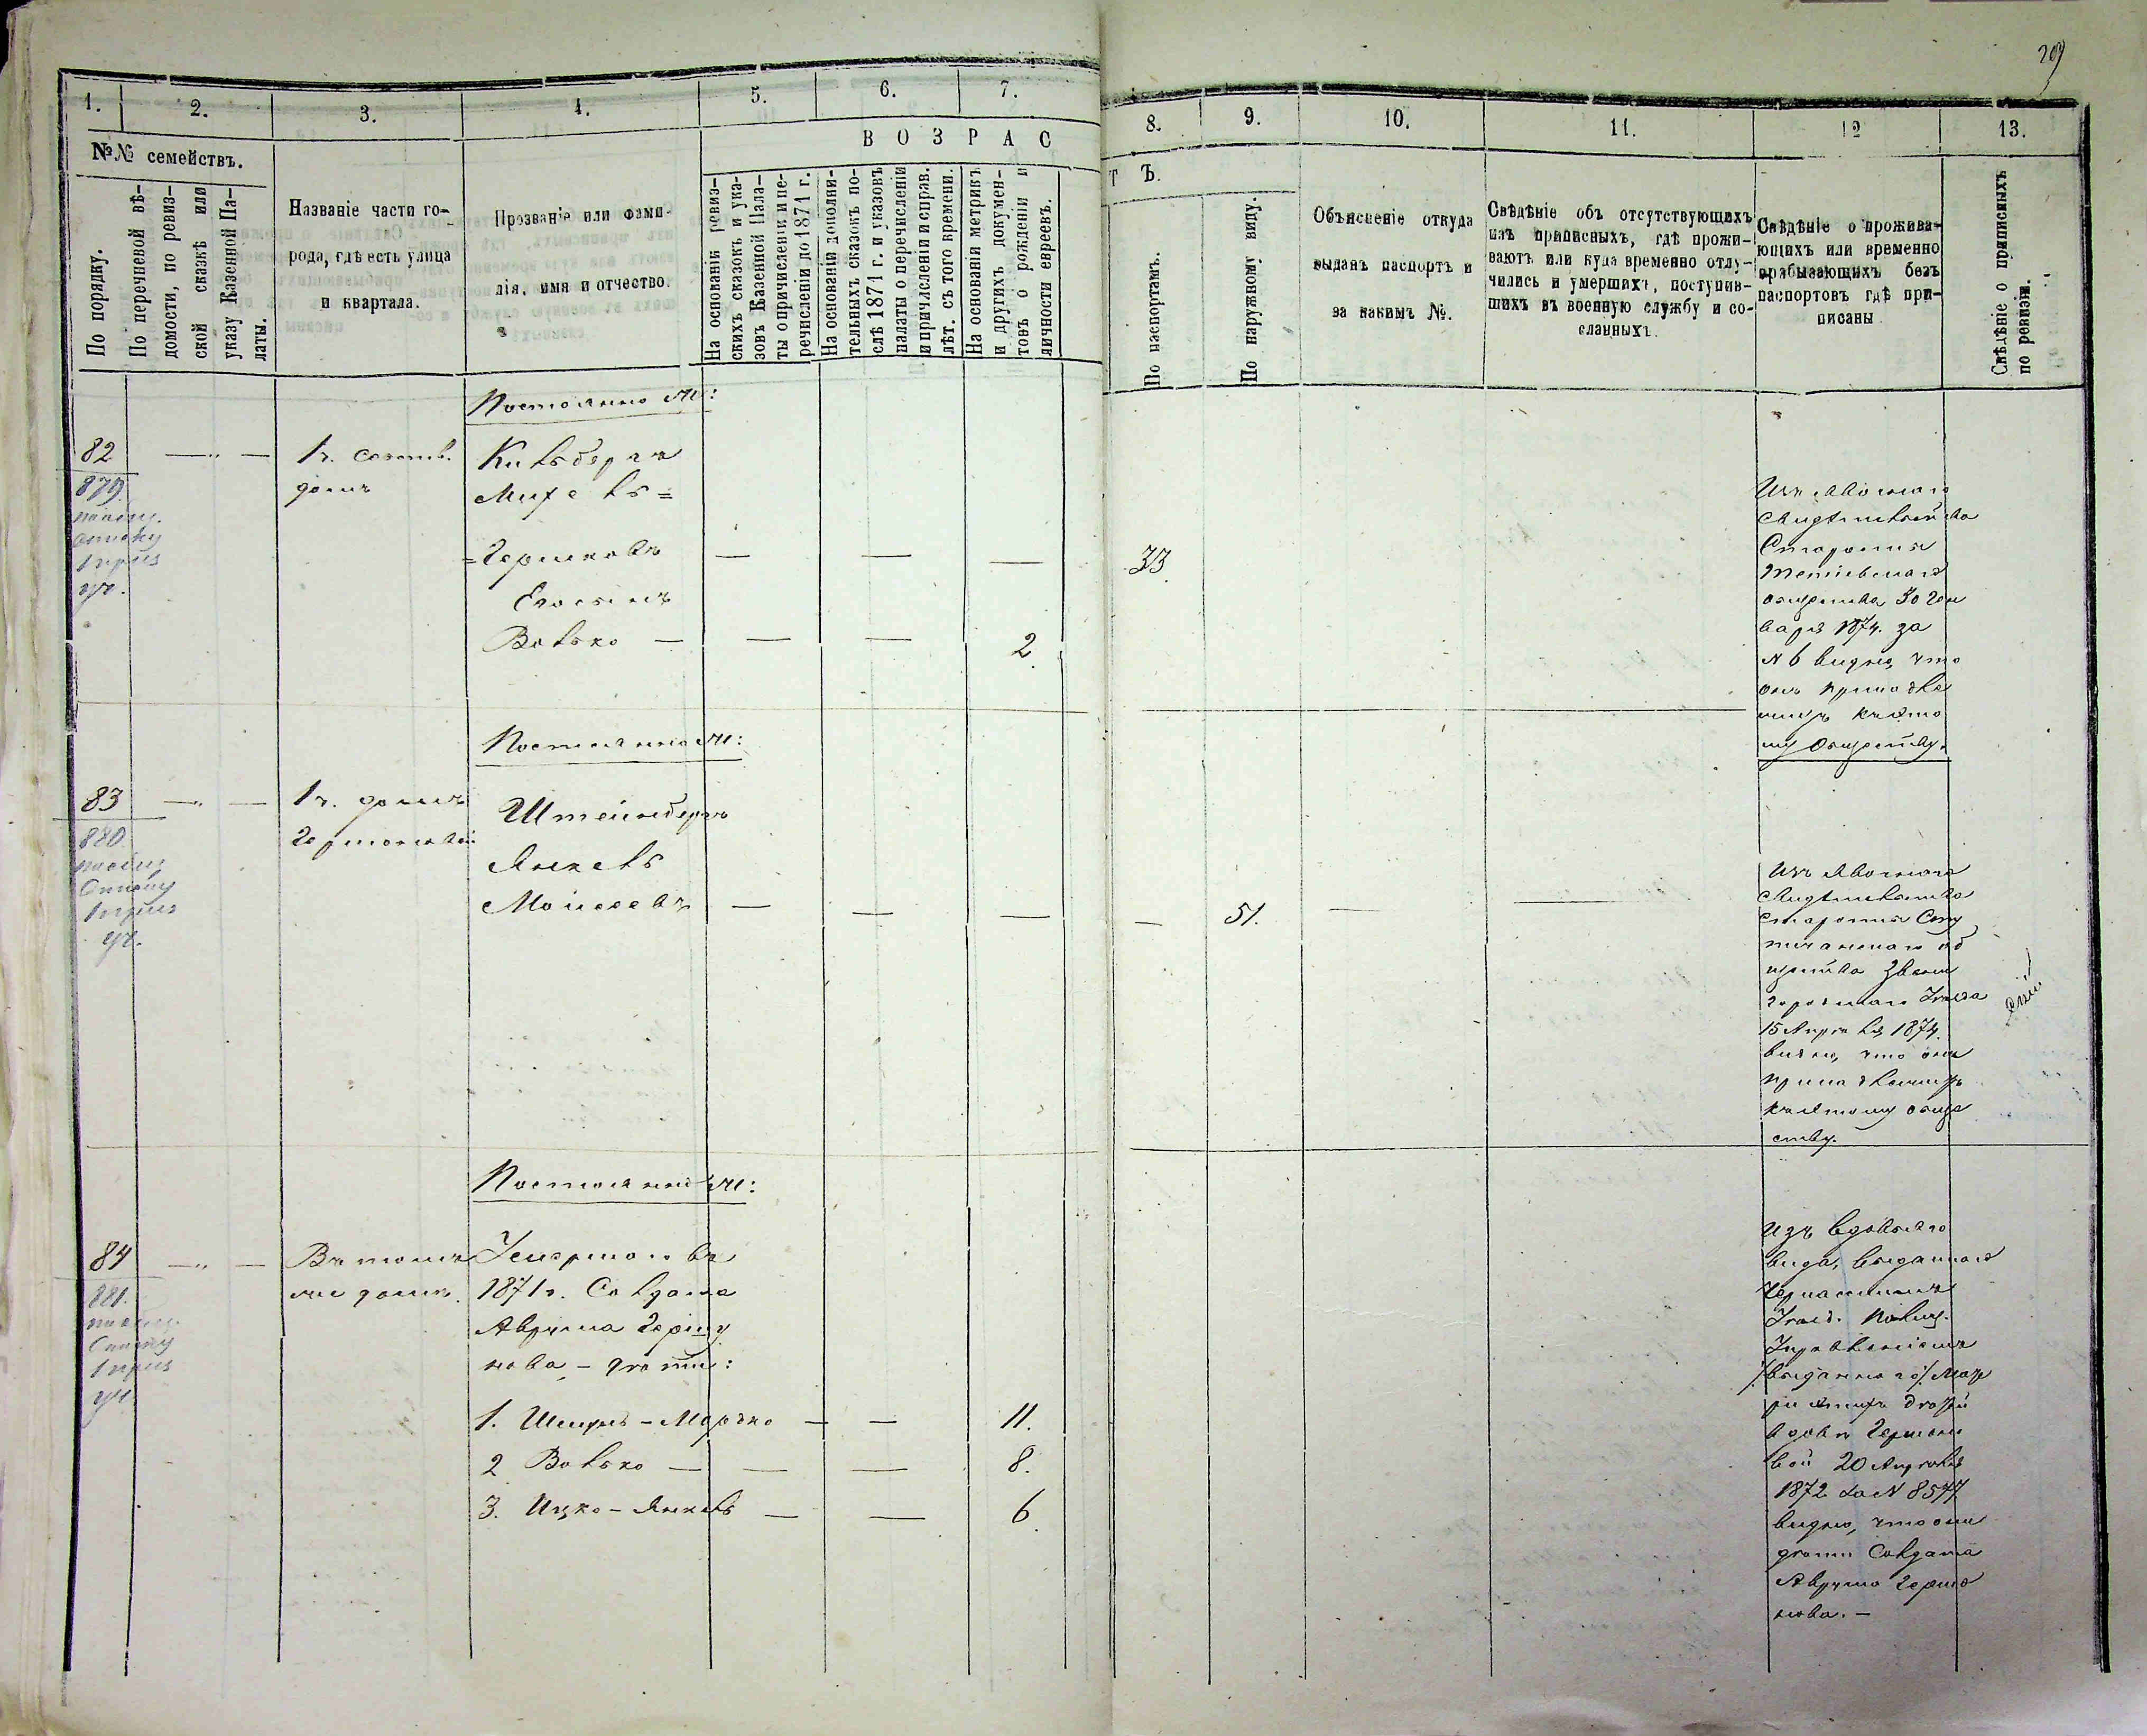 209
1. 2. 3. 4. 5. 6. 7.
8. 9. 10. 11. 12 13.
В О З Р А С
Т Ъ.
№№ семействъ.
По порядку.
По перечневой вѣ-
домости, по ревиз-
ской сказкѣ или
указу Казенной Па-
латы.
Названіе части го-
рода, гдѣ есть улица
и квартала.
Прозваніе или фами-
лія, имя и отчество.
На основаніи ревиз-
скихъ сказокъ и ука-
зовъ Казенной Пала-
ты о причисленіи и пе-
речисленіи до 1871 г.
На основаніи дополни-
тельныхъ сказокъ по-
слѣ 1871 г. и указовъ
палаты о перечисленіи
и причисленіи и справ.
лѣт. съ того времени.
На основаніи метрикъ
и другихъ докумен-
товъ о рожденіи и
личности евреевъ.
По паспортамъ.
По наружному виду.
Объясненіе откуда
выданъ паспортъ и
за какимъ №.
Свѣдѣніе объ отсутствующихъ
изъ приписныхъ, гдѣ прожи-
ваютъ или куда временно отлу-
чились и умершихъ, поступив-
шихъ въ военную службу и со-
сланныхъ.
Свѣдѣніе о прожива-
ющихъ или временно
прабывающихъ безъ
паспортовъ гдѣ при-
писаны
Свѣдѣніе о приписныхъ
по ревизіи.
Постоянно
82 — „ — 1 ч. собств. Кильберга
879. домъ Михель =
=Гершковъ — — — 33.
1 приз
уч.
Волько — — — 2.
Изъ явочнаго
свидѣтельства
Старосты
общества 30 Ген
варя 1874. за
N 6 видно, что
онъ принадле
житъ къ это
му Обществу.
Постоянно
83 — „ — 1 ч. домъ Штейнбергъ
880.
Янкель
Мойсеевъ — — — — 51. — —
1 приз
уч.
Изъ явочнаго
свидѣтельства
старосты
об
щества Звени
городскаго Уѣзда
15 Апрѣля 1874.
видно, что онъ
принадлежитъ
къ этому обще
ству.
Постоянно
84 — „ — Въ томъ Умершаго въ
881. же домѣ. 1871 г. Солдата
Аврума Герш
кова – дѣти:
1 приз
уч.
1. Шмуль – Мордко — — 11.
2 Волько — — — 8.
3. Ицко – Янкель — — 6.
Изъ вдовьяго
вида, выданнаго
Черкасскимъ
Уѣзд. Полиц.
Управленіемъ
выданнаго
ри этихъ дѣтей
вдовѣ
вой 20 Апрѣля
1872 за N 8577
видно, что они
дѣти Солдата
Аврума Герш
кова. —